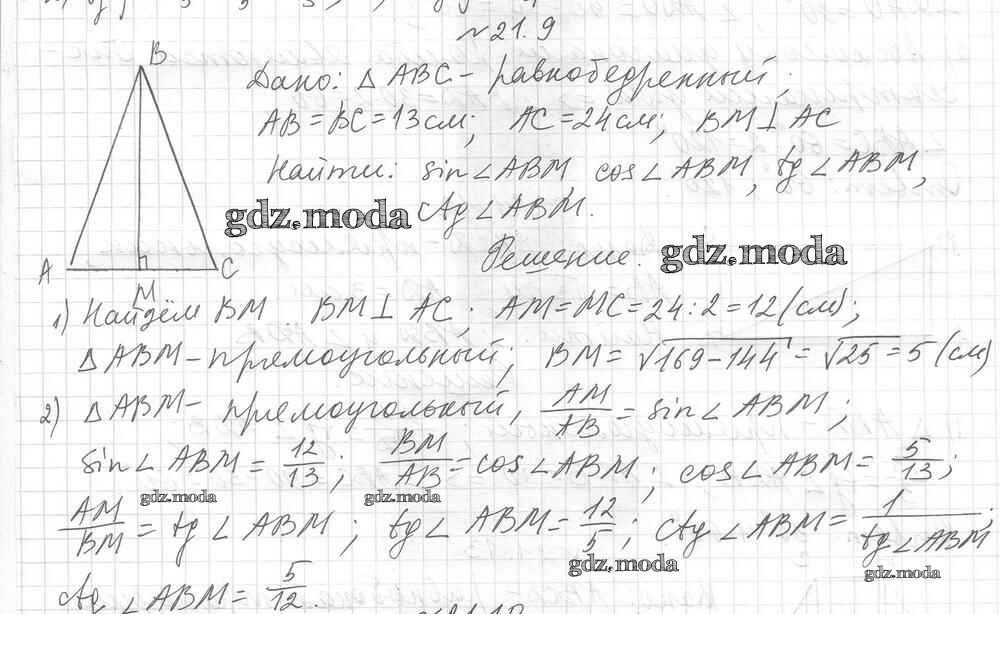 №21.9
B
Дано: △ ABC – равнобедренный;
AB = BC = 13 см; AC = 24 см; BM ⊥ AC
Найти: sin ∠ ABM, cos ∠ ABM, tg ∠ ABM,
gdz.moda
ctg ∠ ABM.
Решение.
gdz.moda
A
C
M
1) Найдём BM BM ⊥ AC; AM = MC = 24 : 2 = 12 (см);
△ ABM – прямоугольный; BM = √169 – 144 = √25 = 5 (см)
2) △ ABM – прямоугольный, AM/AB = sin ∠ ABM;
sin ∠ ABM = 12/13; BM/AB = cos ∠ ABM; cos ∠ ABM = 5/13;
gdz.moda gdz.moda
AM/BM = tg ∠ ABM; tg ∠ ABM = 12/5; ctg ∠ ABM = 1/tg ∠ ABM;
gdz.moda gdz.moda
ctg ∠ ABM = 5/12.